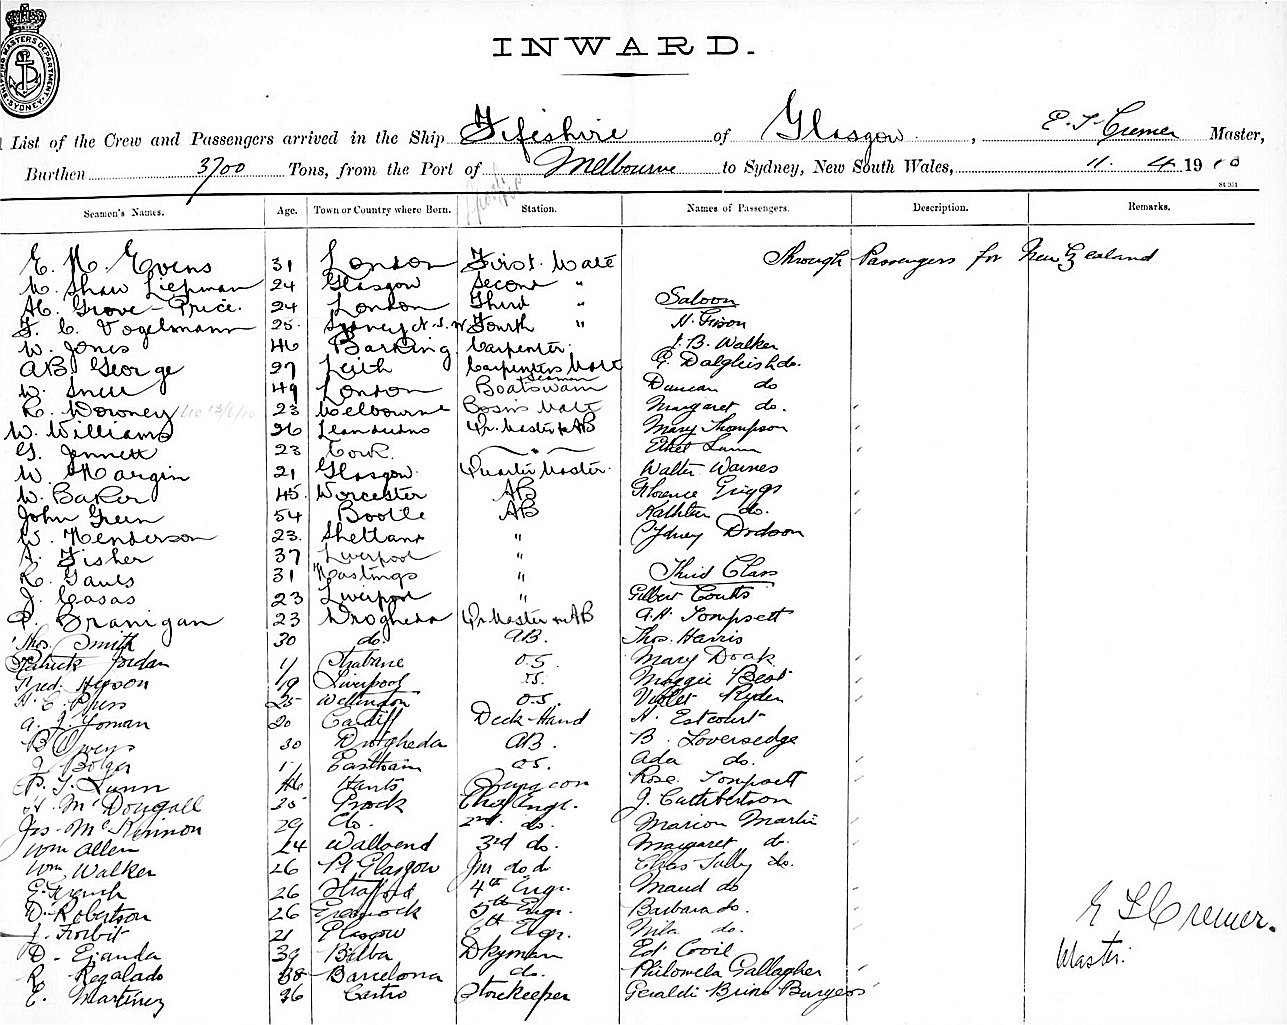 SHIPPING MASTERS DEPARTMENT SYDNEY
INWARD.
List of the Crew and Passengers arrived in the Ship Fifeshire of Glasgow, E. T. Cremer Master,
Burthen 3700 Tons, from the Port of Melbourne to Sydney, New South Wales, 11. 4. 1910
Seamen's Names. Age. Town or Country where Born. Station. Names of Passengers. Description. Remarks.
Through Passengers for New Zealand
E. Evens 31 London First Mate
W. Shaw Liepman 24 Glasgow Second "
Grove-Price. 24 London Third " Saloon
F. C. Vogelmann 25. Sydney N.S.W Fourth "
W. Jones 46 Barking Carpenter. J. B. Walker
AB George 27 Leith Carpenters Mate Dalgleish do.
W. 49 London Boatswain Duncan do
R. Downey 23 Melbourne Bosns Mate Margaret do.
W. Williams 26 Qr. Master & AB Mary Thompson
G. Jennett 23 Cork. " Ethel Lunn
W. Margin 21 Glasgow. Quarter Master. Walter Warnes
W. Baker 45. Worcester AB Florence Griggs
John Green 54 Bootle AB Kathleen do.
W. Henderson 23. " Cydney Dodson
A. Fisher 37 Liverpool "
R. Gauls 31 Hastings " Third Class
J. Casas 23 Liverpool " Gilbert Coutts
P. Branigan 23 Drogheda Qr. Master AB A. H. Tompsett
Thos. Smith 30 do. AB. Thos. Harris
Patrick Jordan Strabane O.S. Mary Doak
Fred. 19 Liverpool Maggie Best
H. E. 25 Wellington O.S. Violet Ryder
A. J. 20 Cardiff Deck-Hand H. Estcourt
B. Owens 30 Drogheda AB. B. Loversedge
J. Bolger Eastham OS. Ada do.
P. T. Lunn Hants Surgeon Rose Tompsett
McDougall 25 Chief Engr. J. Cuthbertson
Jas. McKinnon 29 do. 2nd. do. Marion Martin
Wm Allen 24 Wallsend 3rd do. Margaret do.
Wm. Walker 26 Pt Glasgow Jnr do do Tully do.
E. French 26 4th Engr. Maud do
D. Robertson 26 Greenock 5th Engr. Barbara do.
J. 21 Glasgow 6th Engr. do.
D. Ejanda 39 Bilba Dkyman Ed. Covil
R. Regalado 38 Barcelona do. Philomela Gallagher
E. Martinez 36 Castro Storekeeper
E T Cremer.
Master.